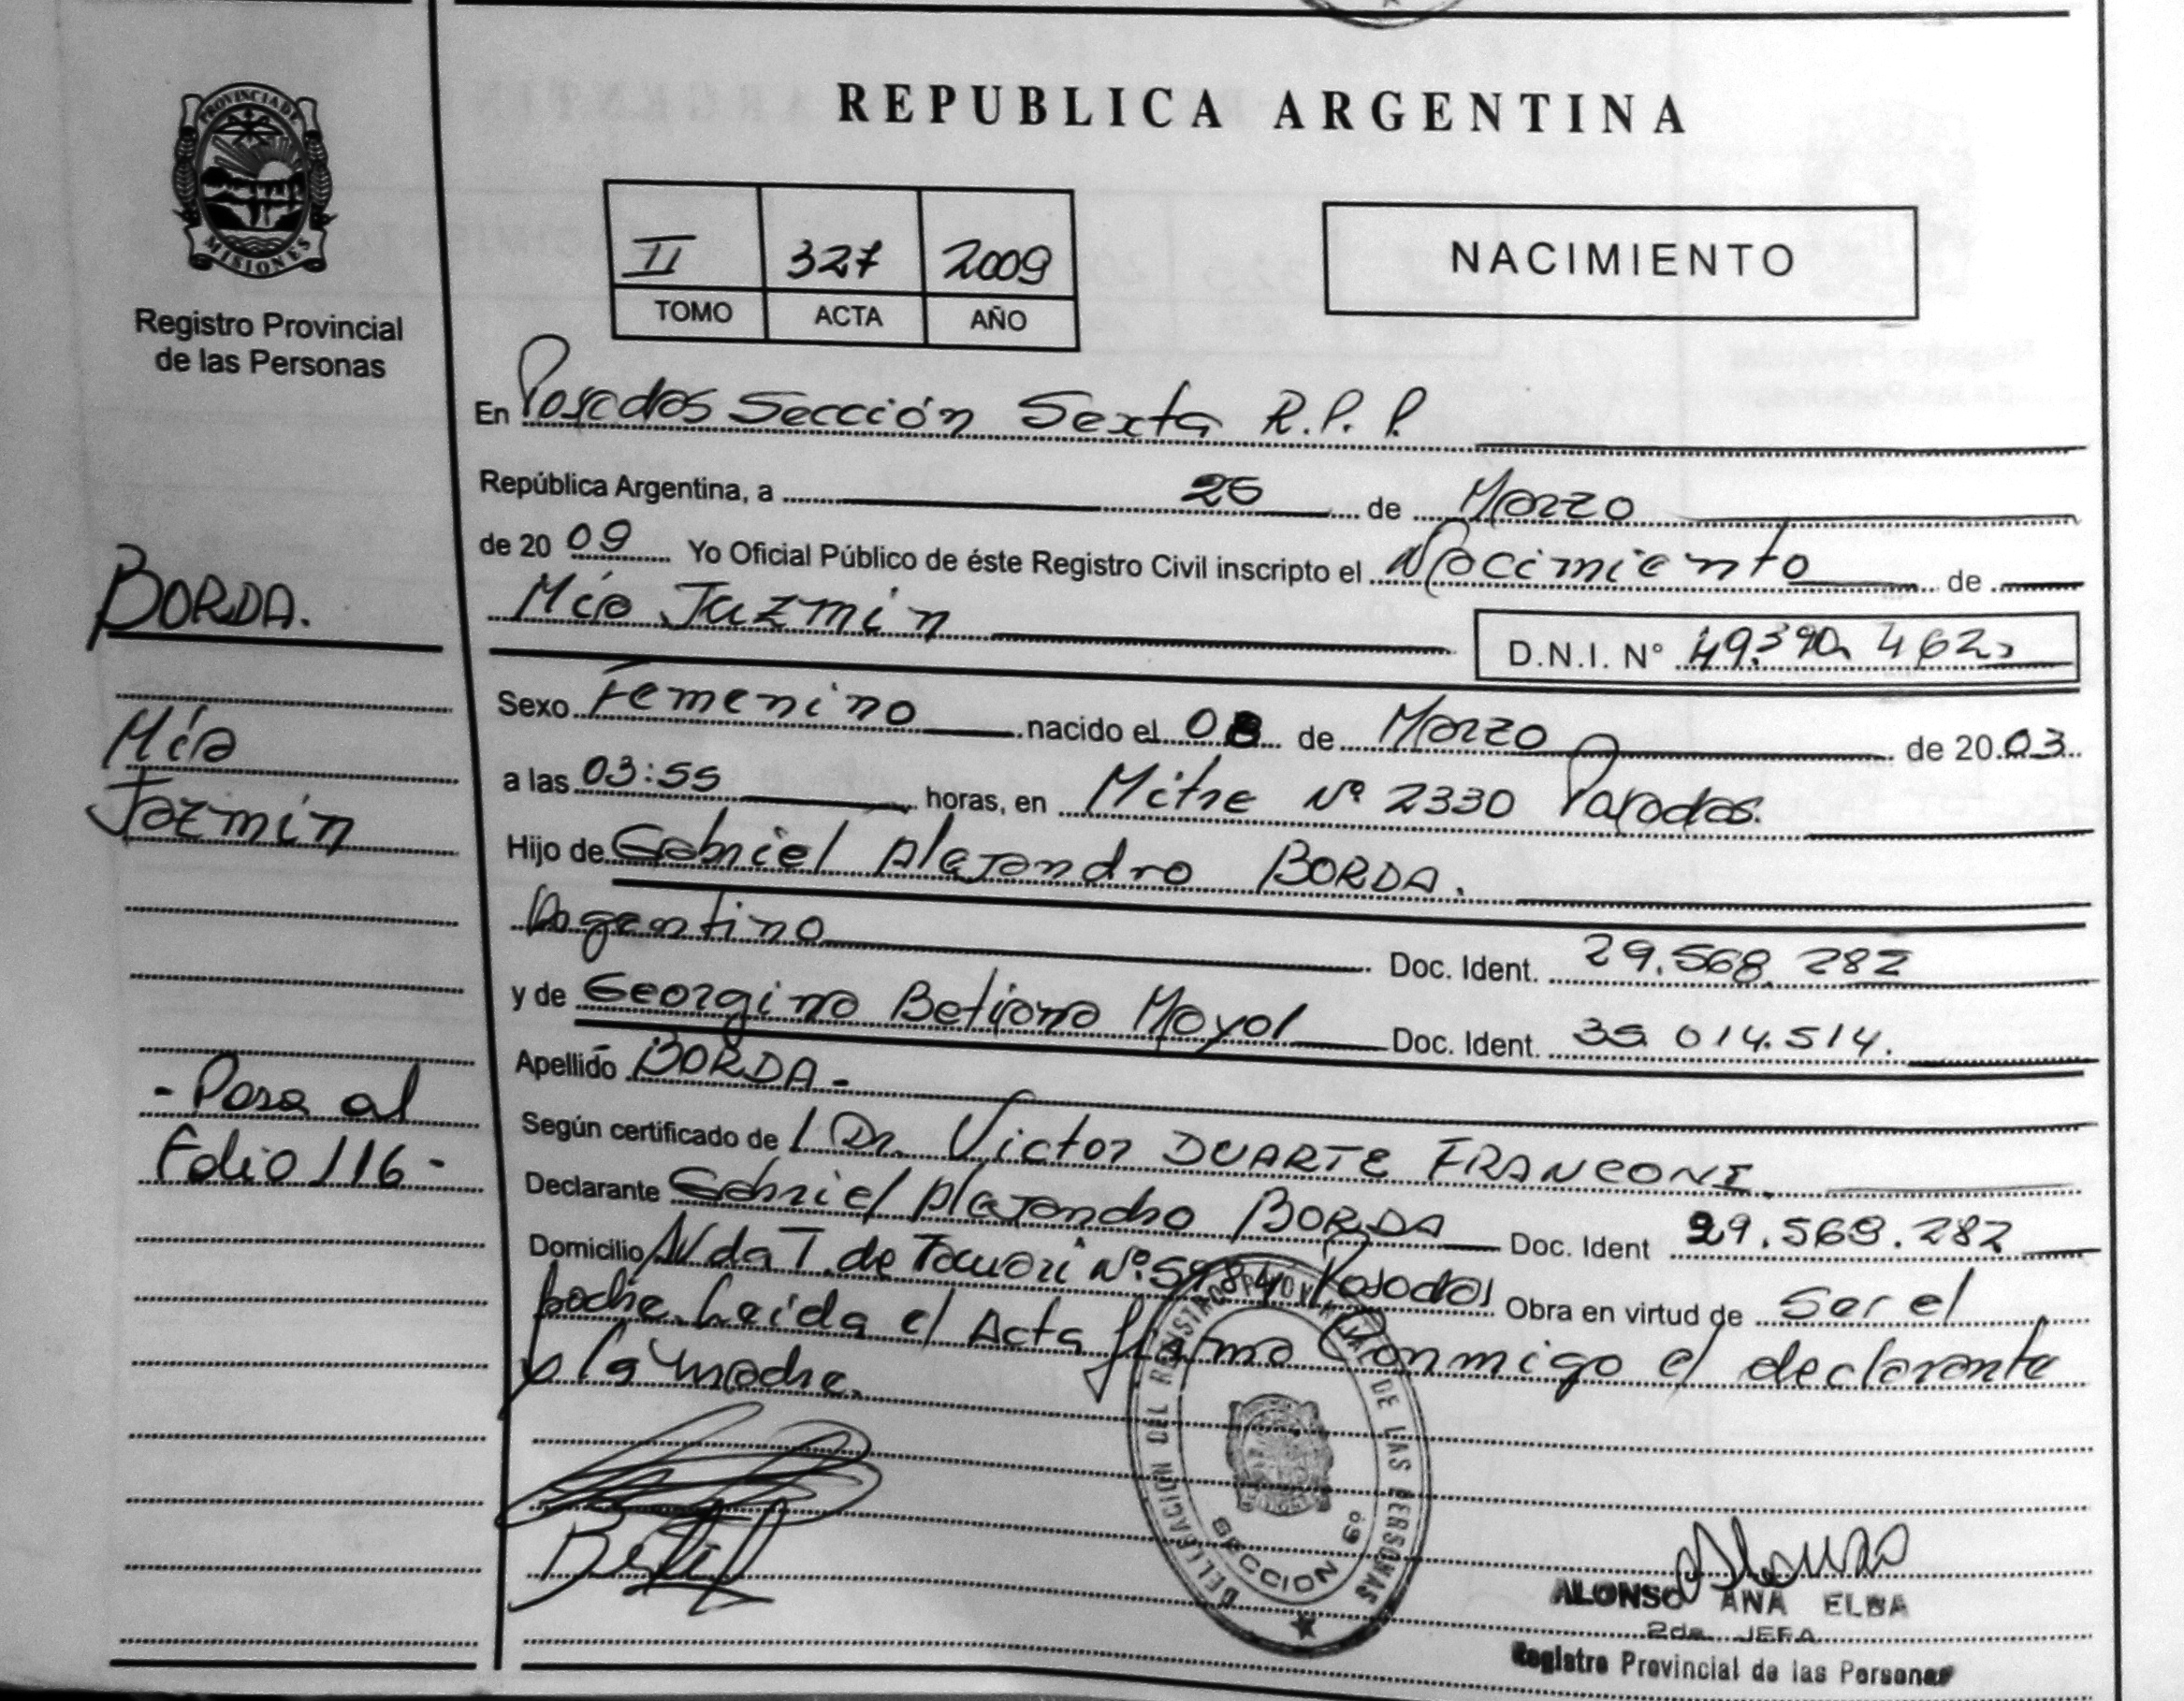 PROVINCIA DE
MISIONES
Registro Provincial
de las Personas
BORDA.
Mía
Jazmín
- Pasa al
Folio 116 -
REPUBLICA ARGENTINA
II 327 2009
TOMO ACTA AÑO
NACIMIENTO
En Posadas Sección Sexta R.P.P.
República Argentina, a 26 de Marzo
de 2009 Yo Oficial Público de éste Registro Civil inscripto el Nacimiento de
Mía Jazmín D.N.I. N° 49.390.462
Sexo Femenino nacido el 08 de Marzo de 20.03
a las 03:55 horas, en Mitre Nº 2330 Posadas.
Hijo de Gabriel Alejandro BORDA.
Argentino Doc. Ident. 29.568.282
y de Georgina Betiana Mayol Doc. Ident. 35.014.514.
Apellido BORDA -
Según certificado de l Dr. Victor DUARTE FRANCONI.
Declarante Gabriel Alejandro BORDA Doc. Ident 29.568.282
Domicilio Avda T. de Tacuarí Nº 5984 Posadas Obra en virtud de Ser el
padre. Leída el Acta firma conmigo el declarante
y la madre.
DELEGACION DEL REGISTRO PROVINCIAL DE LAS PERSONAS
SECCION 6º
ALONSO ANA ELBA
2da. JEFA
Registro Provincial de las Personas